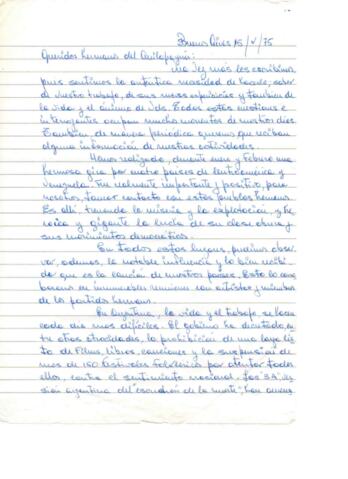 Buenos Aires 15/V/75
Queridos hermanos del Quilapayún:
Una vez más les escribimos
pues sentimos la auténtica necesidad de hacerlo, saber
de vuestro trabajo, de sus nuevas experiencias y también de
la vida y el ánimo de Uds. Todas estas cuestiones e
interrogantes ocupan muchos momentos de nuestros días.
También, de manera periódica queremos que reciban
alguna información de nuestras actividades.
Hemos realizado, durante enero y febrero una
hermosa gira por cuatro países de Centroamérica y
Venezuela. Fue realmente importante y positivo, para
nosotros, tomar contacto con estos pueblos hermanos.
Es allí, tremenda la miseria y la explotación, y he-
roica y gigante la lucha de su clase obrera y
sus movimientos democráticos.
En todos estos lugares, pudimos obser-
var, además, la notable influencia y lo bien recibi-
da que es la canción de nuestros países. Esto lo
en innumerables reuniones con artistas y miembros
de los partidos hermanos.
En Argentina, la vida y el trabajo se
cada día más difíciles. El gobierno ha decretado, en-
tre otras atrocidades, la prohibición de una larga lis-
ta de films, libros, canciones y la suspensión de
más de 160 festivales folklóricos por atentar todos
ellos, contra el sentimiento nacional. Las 3 A, ver-
sión argentina del "escuadrón de la muerte", han